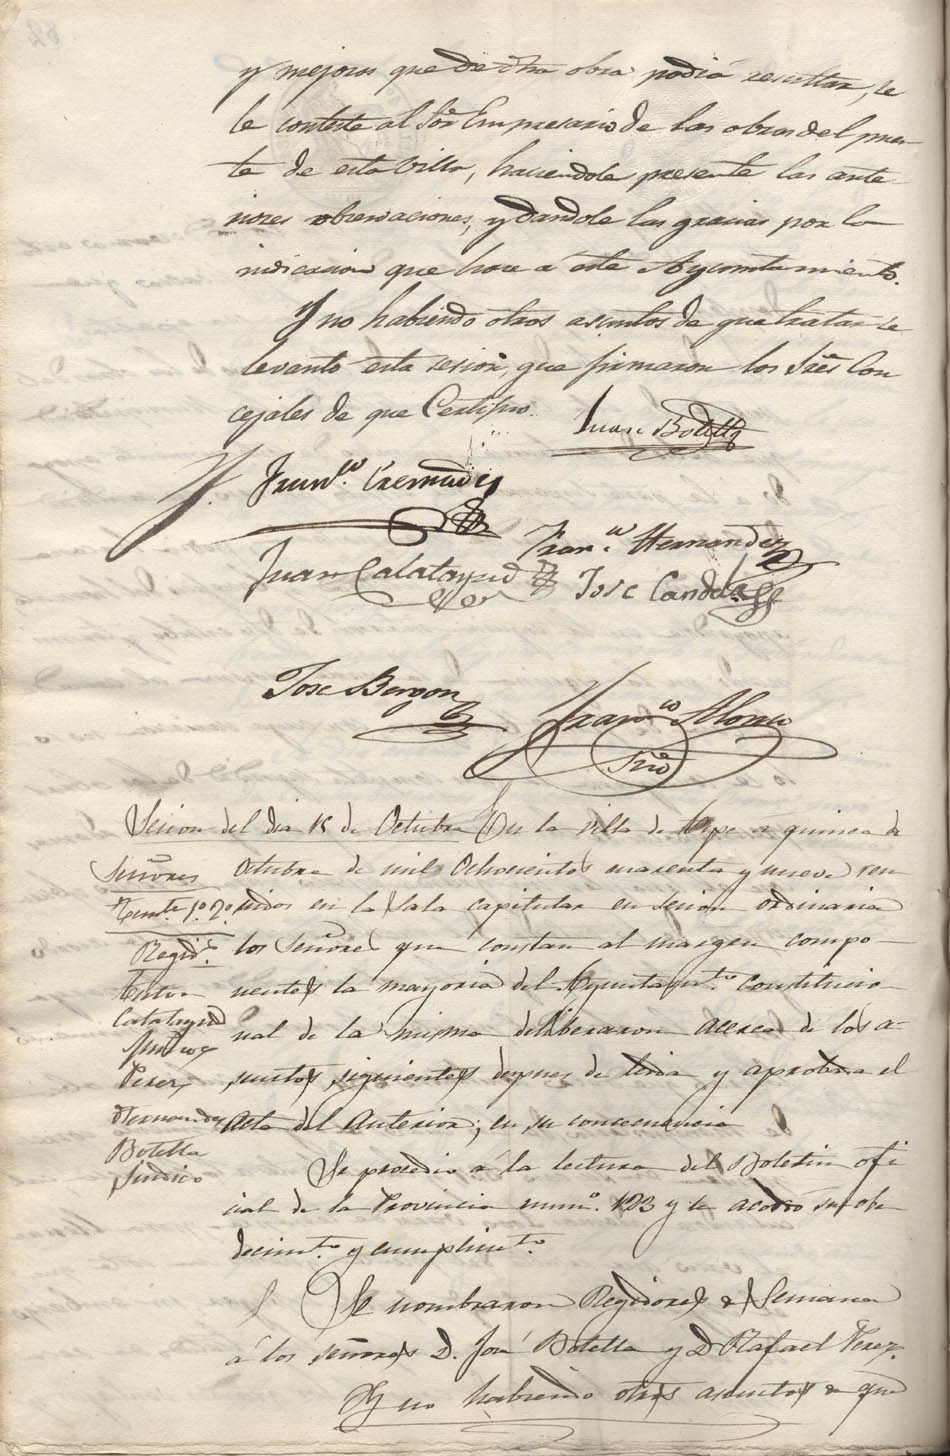 y mejoras que de dha obra podia resultar, se
le conteste al Sor Empresario de las obras del puen
te de esta Villa, haciendole presente las ante
riores observaciones, y dandole las gracias por la
indicacion que hace á este Ayuntamiento.
Y no habiendo otros asuntos de que tratar se
levantó esta sesion, que firmaron los Sres Con
cejales de que Certifico.
Juan Botella
Franco. Cremades
Franco Hernandez
Juan Calatayud
Jose Candela
Jose Bergon
Franco Alonso
Srio
Sesion del dia 15 de Octubre En la villa de Aspe a quince de
Señores
Octubre de mil Ochocientos cuarenta y nueve reu
Tente. 1º. 2º
nidos en la Sala capitular en sesion ordinaria
Regids.
los Señores que constan al margen compo
nentes la mayoria del Ayuntamto. Constitucio
Calatayud
nal de la misma deliberaron acerca de los a-
Muñoz
Perez
suntos siguientes despues de leida y aprobada el
Hernandez
Acta del Anterior; en su consecuencia
Botella
Sindico
Se procedio á la lectura del Boletin ofi
cial de la Provincia numo. 123 y se acordó su obe
decimto. y cumplimto.
Se nombraron Regidores de Semana
á los señores D. José Botella y D Rafael Perez.
Y no habiendo otros asuntos de que